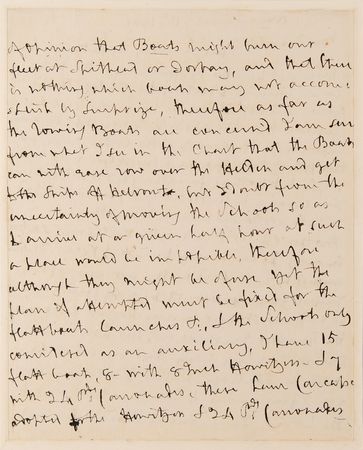 of opinion that Boats might burn our
fleet at Spithead or Torbay, and that there
is nothing which boats may not accom=
=plish by Surprize, therefore as far as
the rowing Boats are concerned I am sure
from what I see in the Chart that the Boats
can with ease row over the and get
to the Ships off Helvoet, but I doubt from the
uncertainty of moving the Schoots so as
to arrive at a given half hour at such
a place would be impossible, therefore
although they might be of use. Yet the
plan if attempted must be fixed for the
flatt boats Launches &c, & the Schoots only
considered as an auxiliary, I have 15
flatt boats, 8 - with 8 Inch Howitzers - & 7
with 24 Pdr Carronades, these Launches
adopted for the Howitzer & 24 Pdr Carronades